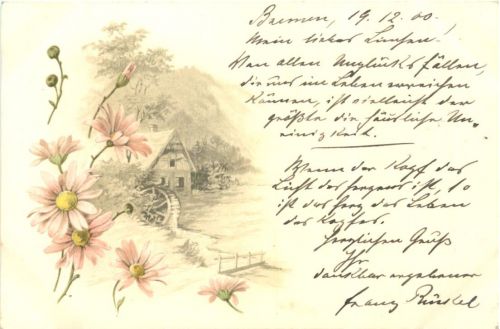 Bremen, 19. 12. 00.
Mein liebes Lienchen!
Von allen Unglücks fällen,
die uns im Leben erreichen
können, ist vielleicht der
größte die häusliche Un-
einigkeit.
Wenn der Kopf das
Licht des Herzens ist, so
ist das Herz das Leben
des Kopfes.
Herzlichen Gruß
Ihr
dankbar ergebener
Franz